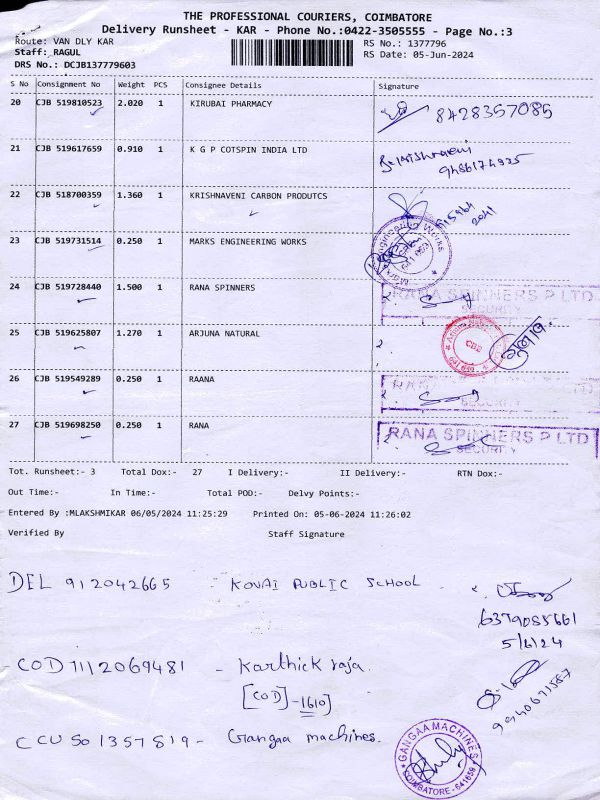 THE PROFESSIONAL COURIERS, COIMBATORE
Delivery Runsheet - KAR - Phone No.:0422-3505555 - Page No.:3
Route: VAN DLY KAR
RS No.: 1377796
Staff: RAGUL
RS Date: 05-Jun-2024
DRS No.: DCJB137779603
S No Consignment No Weight PCS Consignee Details Signature
20 CJB 519810523 2.020 1 KIRUBAI PHARMACY 8428357085
21 CJB 519617659 0.910 1 K G P COTSPIN INDIA LTD
22 CJB 518700359 1.360 1 KRISHNAVENI CARBON PRODUTCS
23 CJB 519731514 0.250 1 MARKS ENGINEERING WORKS
24 CJB 519728440 1.500 1 RANA SPINNERS
RANA SPINNERS P LTD
SECURITY
25 CJB 519625807 1.270 1 ARJUNA NATURAL
26 CJB 519549289 0.250 1 RAANA
27 CJB 519698250 0.250 1 RANA
RANA SPINNERS P LTD
SECURITY
Tot. Runsheet:- 3 Total Dox:- 27 I Delivery:- II Delivery:- RTN Dox:-
Out Time:- In Time:- Total POD:- Delvy Points:-
Entered By :MLAKSHMIKAR 06/05/2024 11:25:29 Printed On: 05-06-2024 11:26:02
Verified By Staff Signature
DEL 912042665 KOVAI PUBLIC SCHOOL
6379085661
5/6/24
COD 7112069481 - Karthick raja.
[COD]-1610
CCU 501357819 - Gangaa machines.
GANGAA MACHINES
COIMBATORE-641659